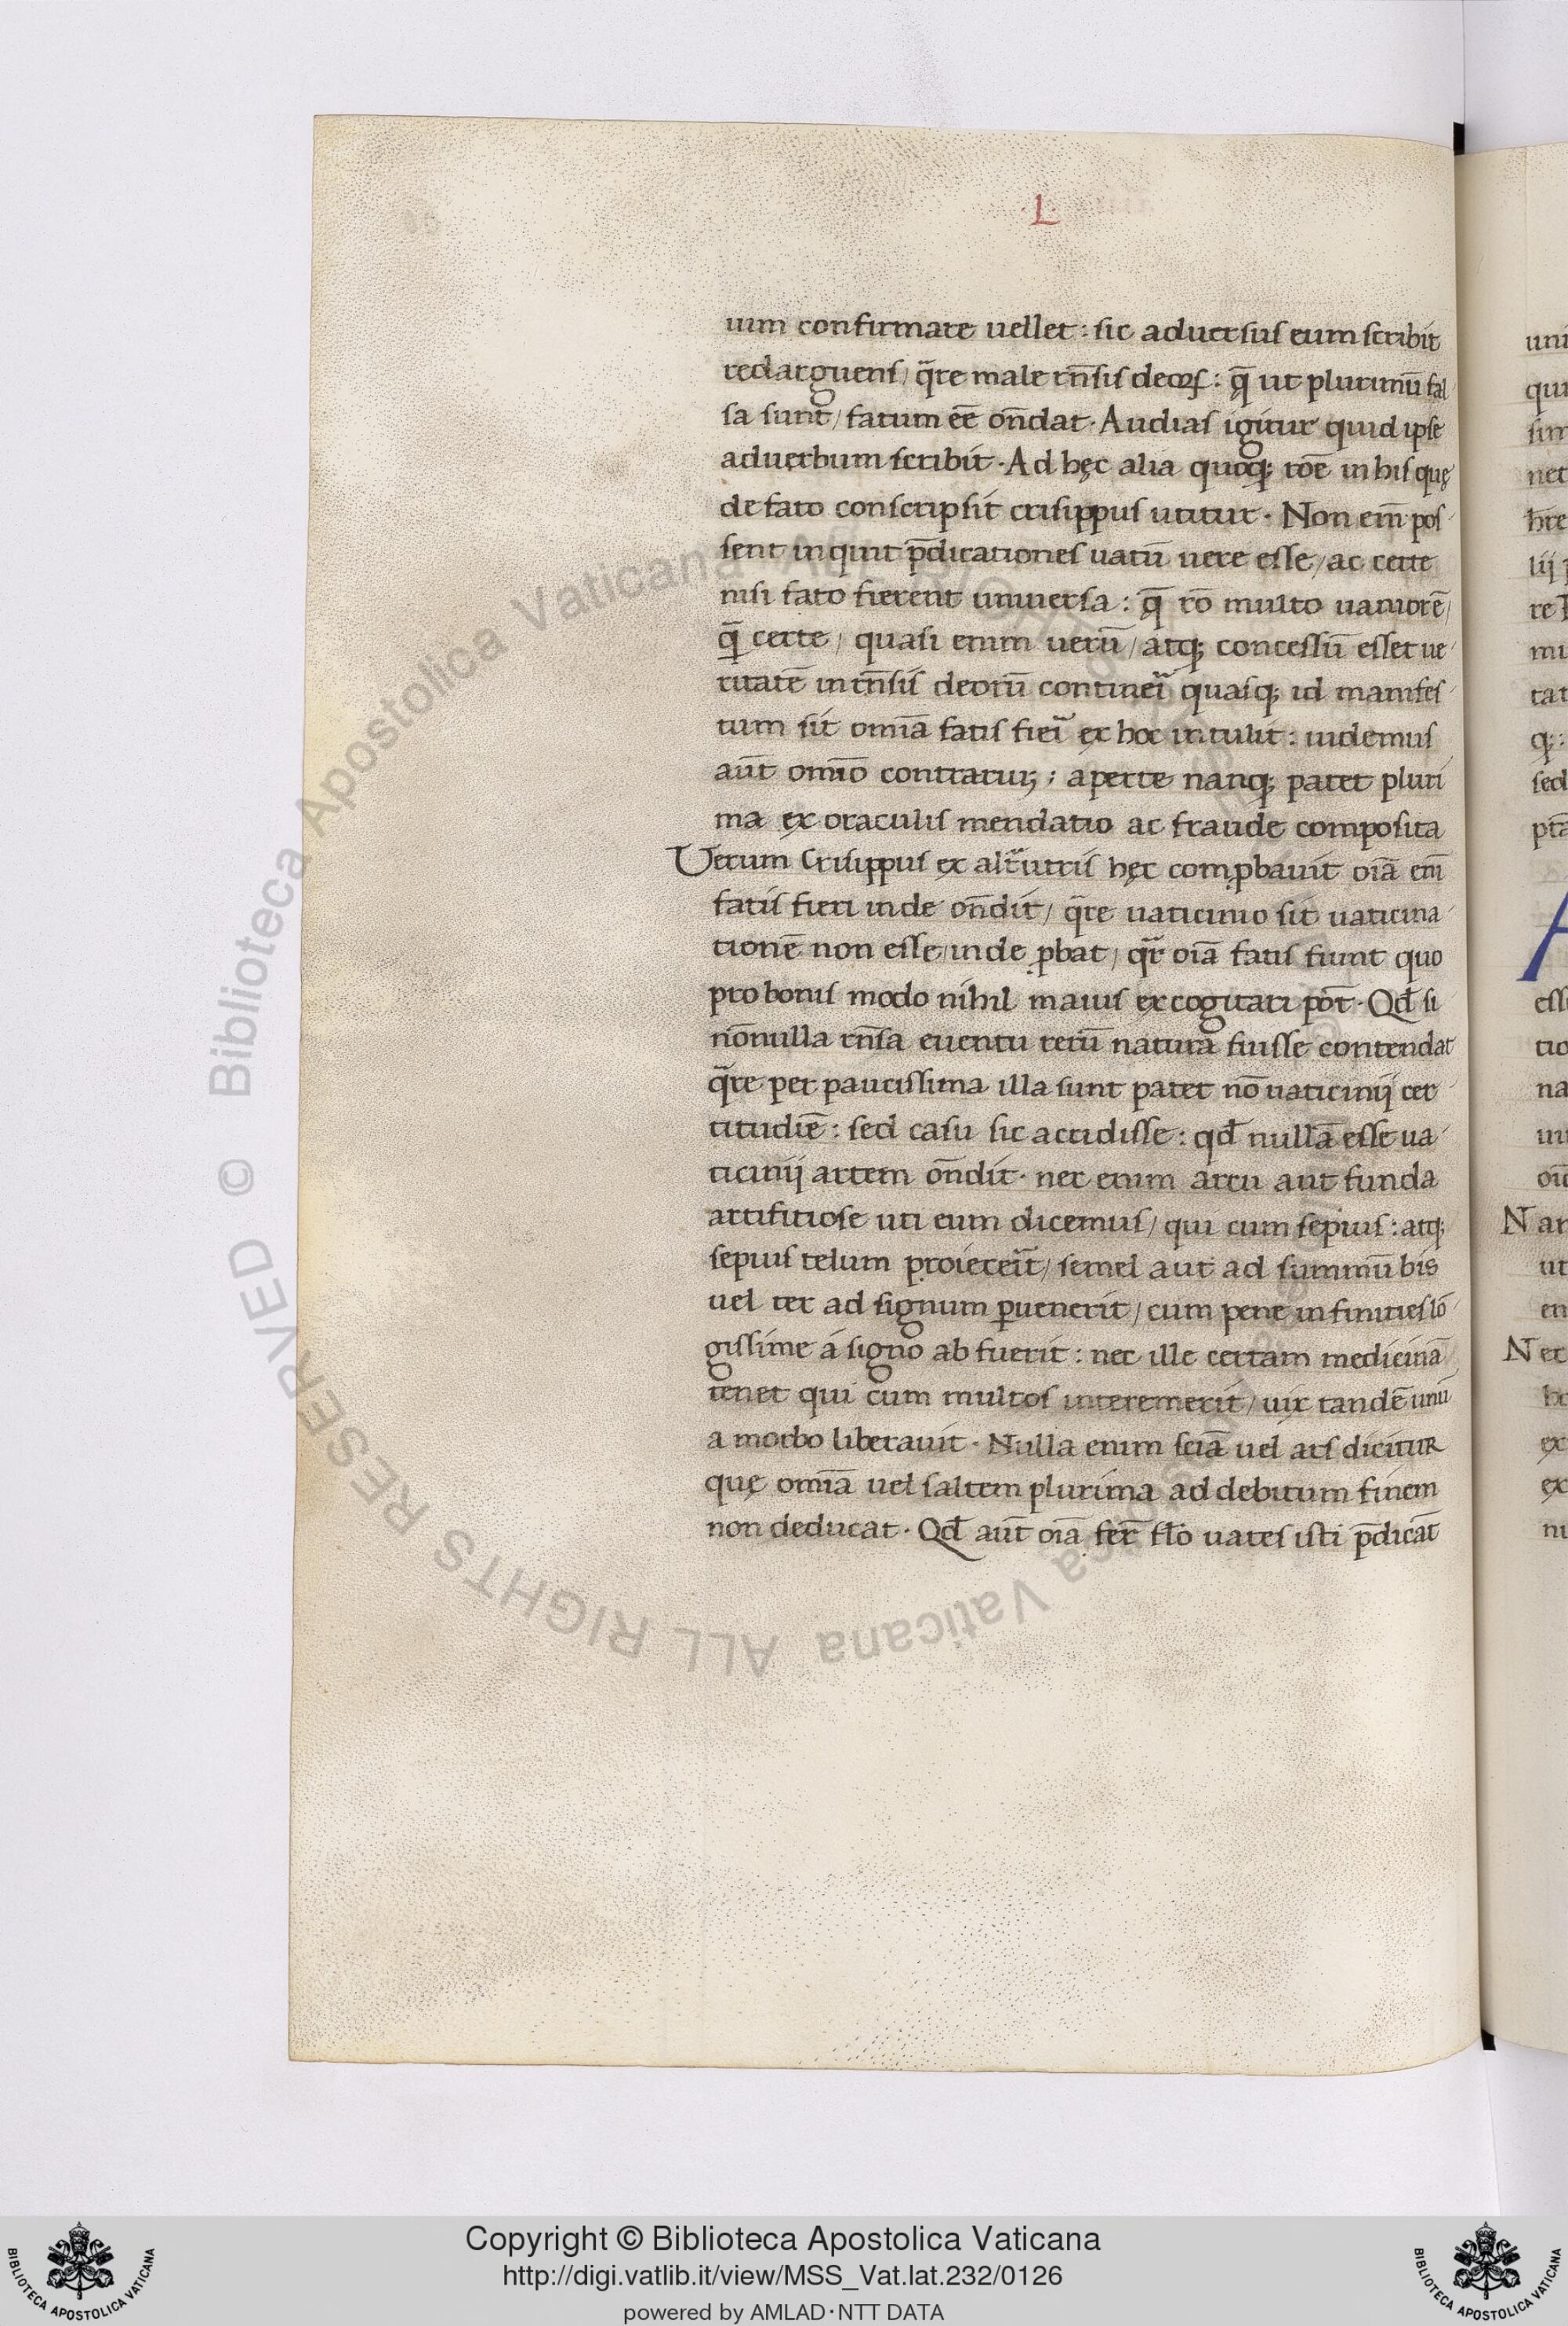 ·L·
uim confirmare uellet: sic aduersus eum scribit
redarguens/ q̄re male rn̄sis deoꝝ: q̄ ut plurimū fal
sa sunt/ fatum eē on̄dat. Audias igitur quid ipse
aduerbum scribit. Ad hęc alia quoq; roē in his quę
de fato conscripsit crisippus utitur. Non em̄ pos
sent inquit p̄dicationes uatū uere esse/ ac certe
nisi fato fierent uniuersa: q̄ rō multo uaniorē/
q̄ certe/ quasi enim uerū/ atq; concessū esset ue
ritatē in rn̄sis deorū contineri quasq; id manifes
tum sit omīa fatis fieri ex hoc intulit: uidemus
aūt omīo contrariuꝫ: aperte nanq; patet pluri
ma ex oraculis mendatio ac fraude composita
Verum Crisippus ex alt̄utris hęc comꝓbauit oīa em̄
fatis fieri inde on̄dit/ q̄re uaticinio sit uaticina
tionē non esse/ inde ꝓbat/ qr̄ oīa fatis fiunt quo
pro bonis modo nihil maius excogitari pōt. Qd̄ si
nōnulla rn̄sa euentu rerū natura fuisse contendat
q̄re per paucissima illa sunt patet nō uaticinij cer
titudīe: sed casu sic accidisse: qd̄ nullā esse ua
ticinij artem on̄dit. nec enim arcu aut funda
artifitiose uti eum dicemus/ qui cum sepius: atq;
sepius telum proiecerit/ semel aut ad summū bis
uel ter ad signum ꝑuenerit/ cum pene infinities lō
gissime á signo abfuerit: nec ille certam medicinā
tenet qui cum multos interemerit/ uix tandē unū
a morbo liberauit. Nulla enim scīa uel ars dicitur
quę omīa uel saltem plurima ad debitum finem
non deducat. Qd̄ aūt oīa fer̄ fło uates isti p̄dicāt
© Biblioteca Apostolica Vaticana ALL RIGHTS RESERVED
Copyright © Biblioteca Apostolica Vaticana
http://digi.vatlib.it/view/MSS_Vat.lat.232/0126
powered by AMLAD·NTT DATA
BIBLIOTECA APOSTOLICA VATICANA
BIBLIOTECA APOSTOLICA VATICANA